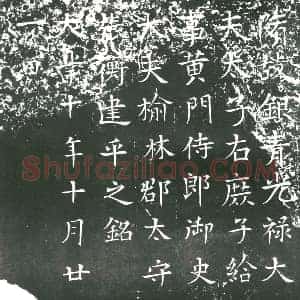 隋故銀青光禄大
夫太子右庶子給
事黄門侍郎御史
大夫榆林郡太守
衡建平之銘
大業十年十月廿
一日
Shufaziliao.COM